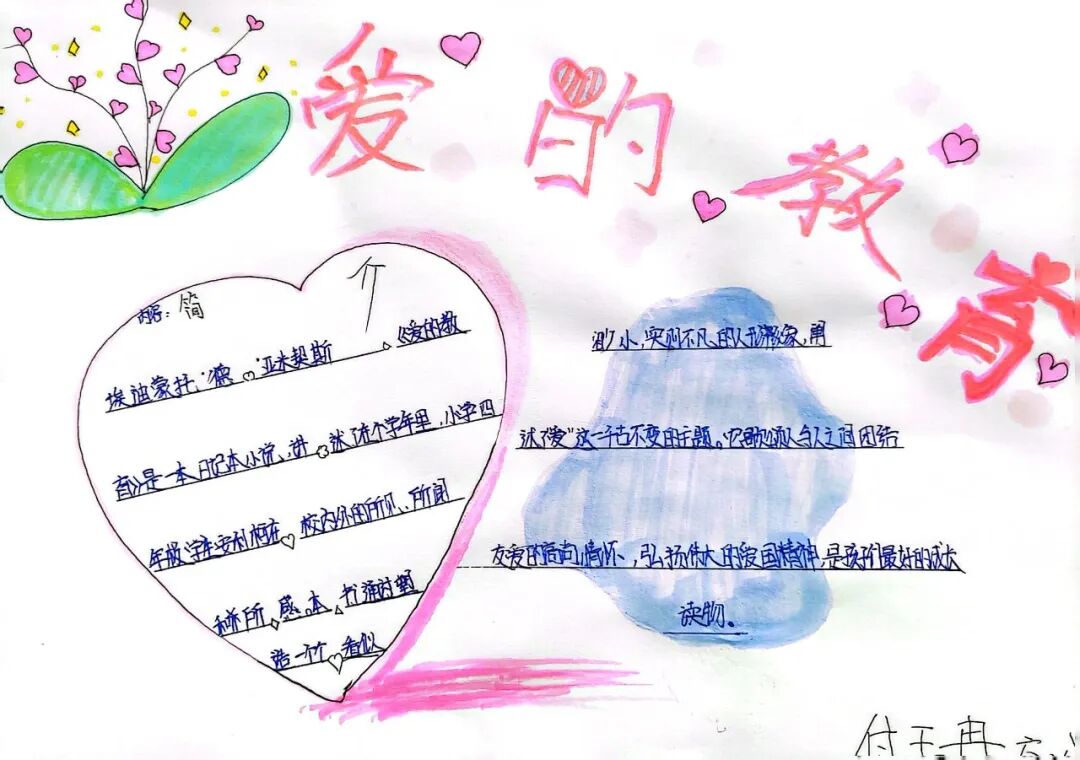 爱的教育
内容:简介
埃迪蒙托·德·亚米契斯。《爱的教
育》是一本日记本小说,讲述六个学年里,小学四
年级学生安利柯在校内外的所见、所闻
和所感。本书通过塑
造一个看似
渺小,实则不凡的人物形象,用
述了“爱”这一千古不变的主题。它歌颂人与人之间团结
友爱的高尚情怀,弘扬伟大的爱国精神,是孩子最好的成长
读物。